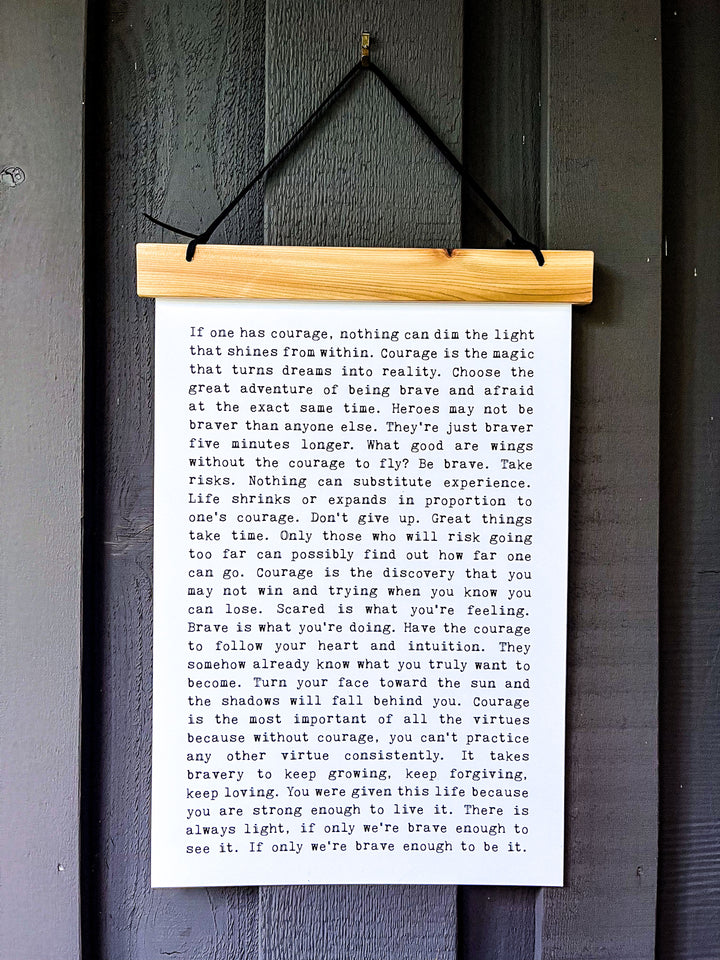 If one has courage, nothing can dim the light
that shines from within. Courage is the magic
that turns dreams into reality. Choose the
great adventure of being brave and afraid
at the exact same time. Heroes may not be
braver than anyone else. They're just braver
five minutes longer. What good are wings
without the courage to fly? Be brave. Take
risks. Nothing can substitute experience.
Life shrinks or expands in proportion to
one's courage. Don't give up. Great things
take time. Only those who will risk going
too far can possibly find out how far one
can go. Courage is the discovery that you
may not win and trying when you know you
can lose. Scared is what you're feeling.
Brave is what you're doing. Have the courage
to follow your heart and intuition. They
somehow already know what you truly want to
become. Turn your face toward the sun and
the shadows will fall behind you. Courage
is the most important of all the virtues
because without courage, you can't practice
any other virtue consistently. It takes
bravery to keep growing, keep forgiving,
keep loving. You were given this life because
you are strong enough to live it. There is
always light, if only we're brave enough to
see it. If only we're brave enough to be it.